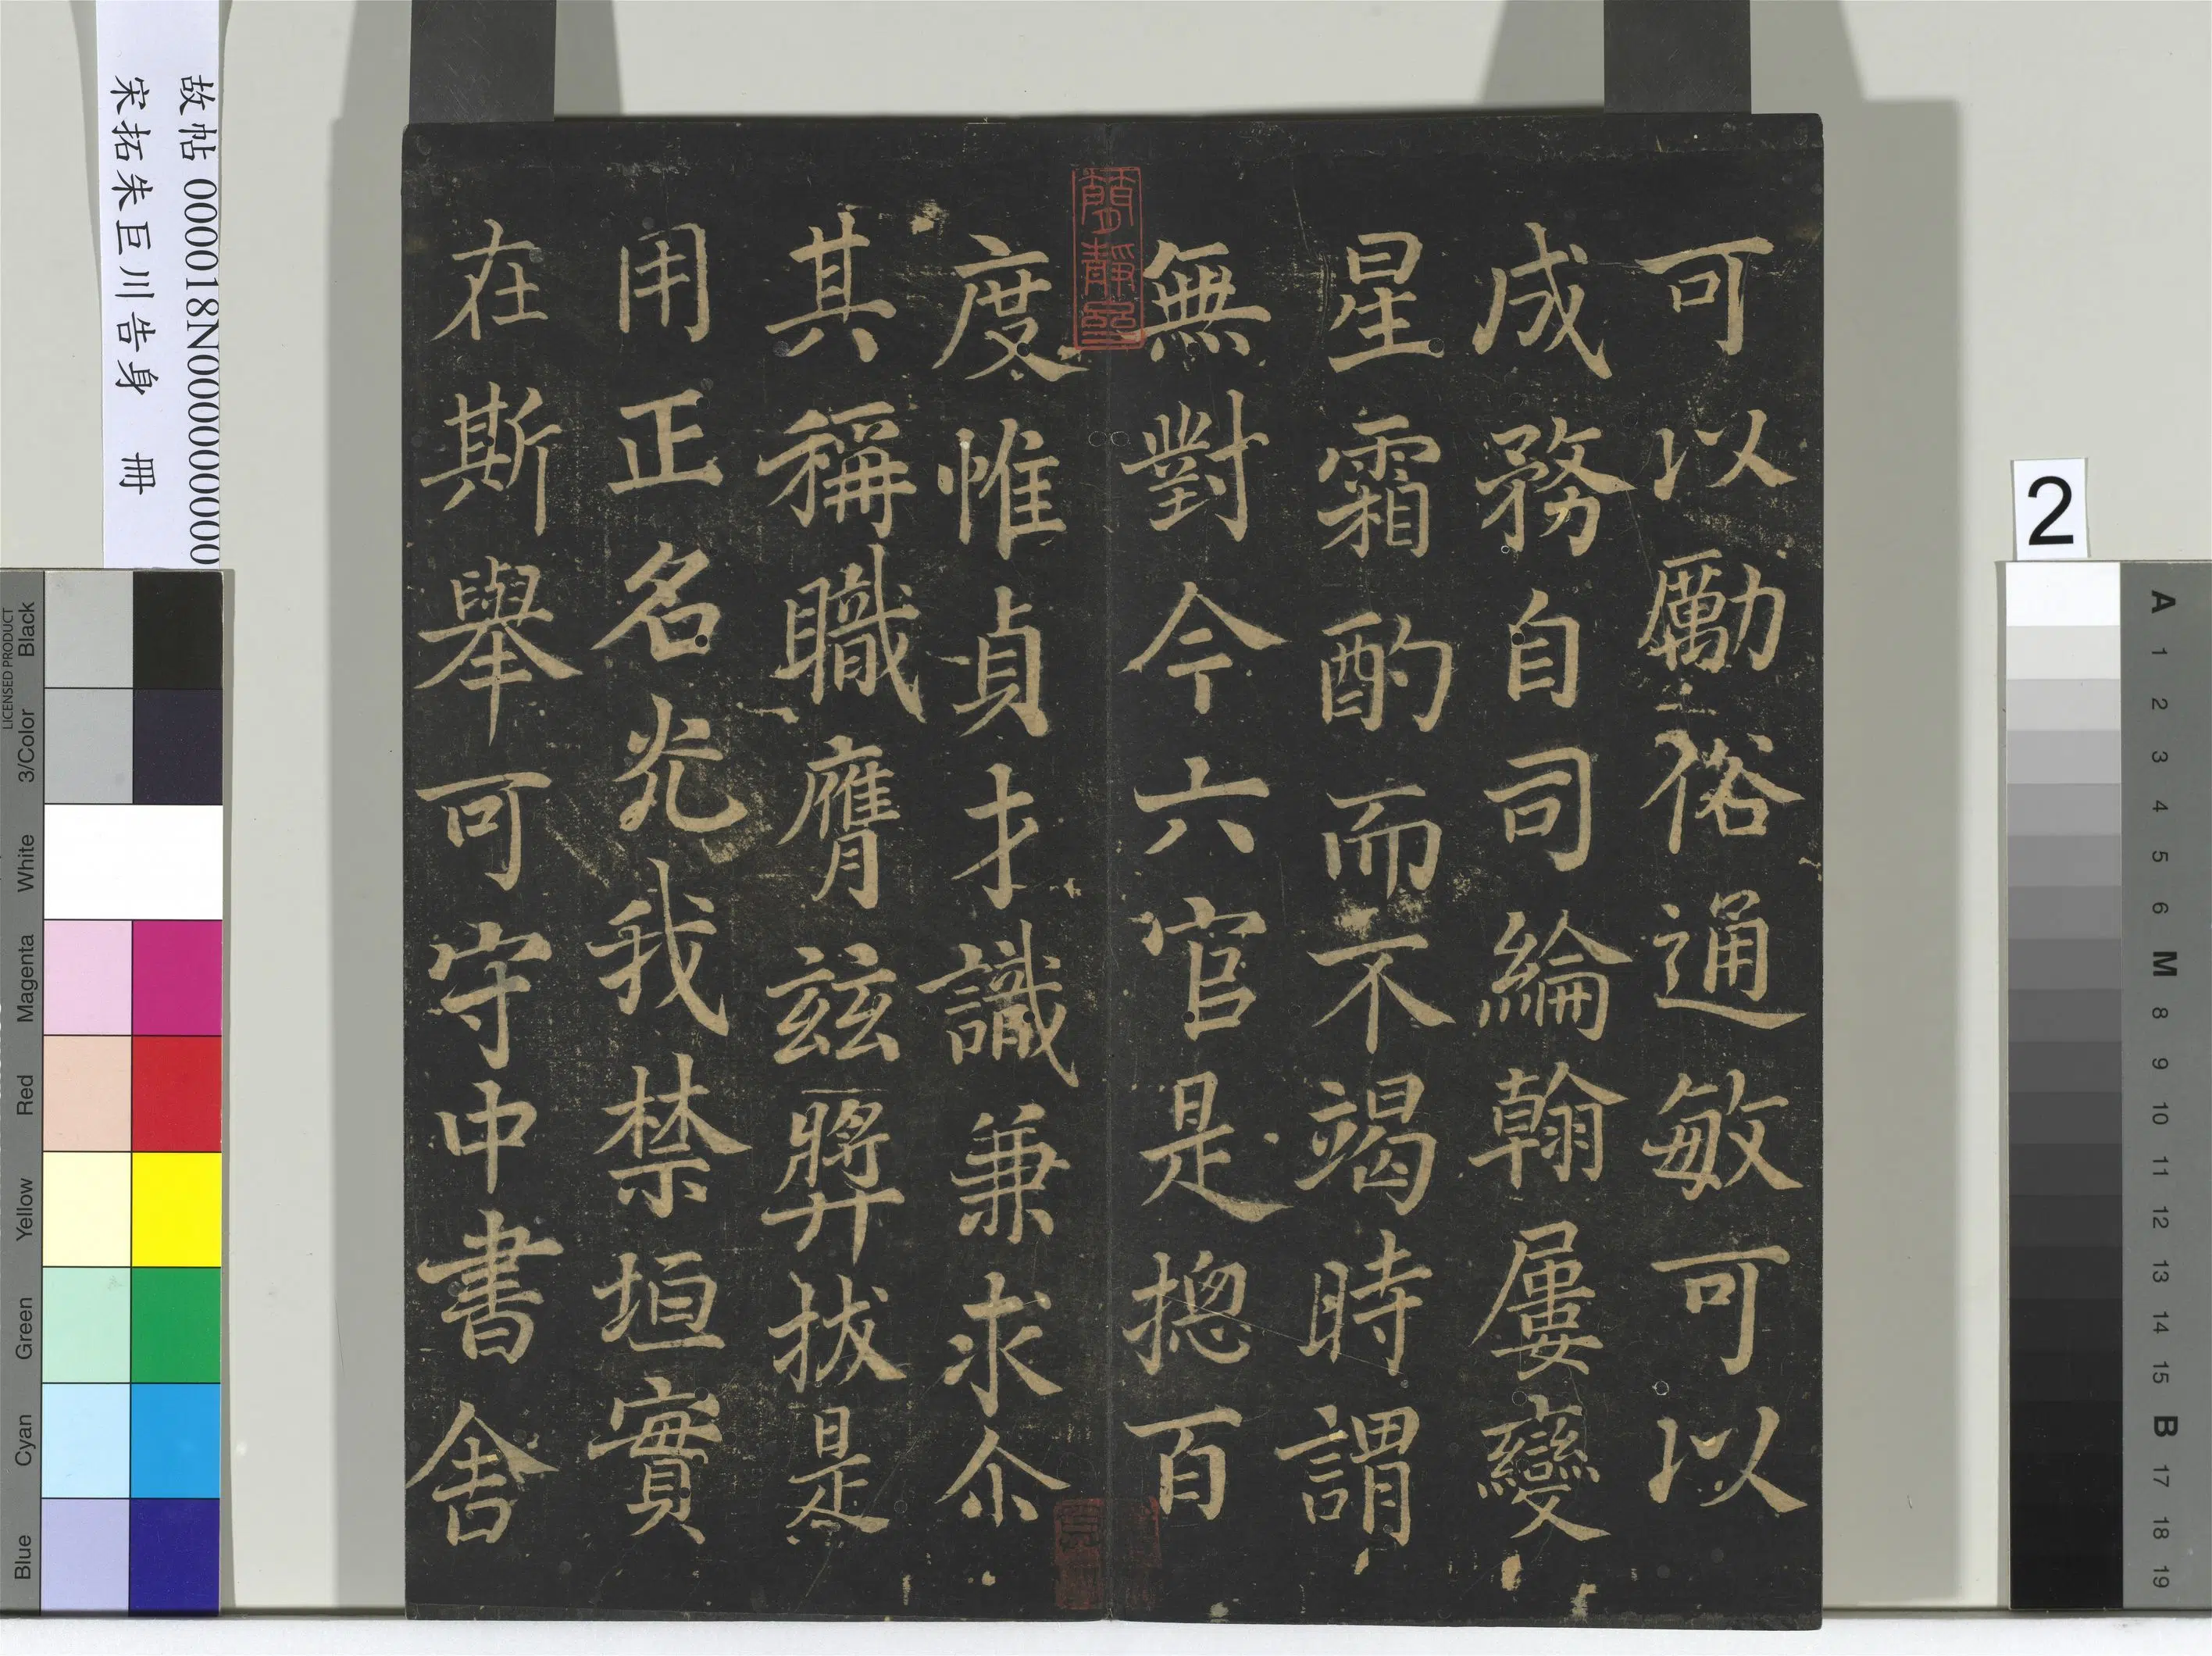 可以勵俗通敏可以
成務自司綸翰屢變
星霜酌而不竭時謂
無對今六官是揔百
度惟貞才識兼求尒
其稱職膺茲獎拔是
用正名光我禁垣實
在斯舉可守中書舍
蘭靜室
故帖 000018N000000000
宋拓朱巨川告身 冊
2
LICENSED PRODUCT
Black
3/Color
White
Magenta
Red
Yellow
Green
Cyan
Blue
A
1
2
3
4
5
6
M
8
9
10
11
12
13
14
15
B
17
18
19